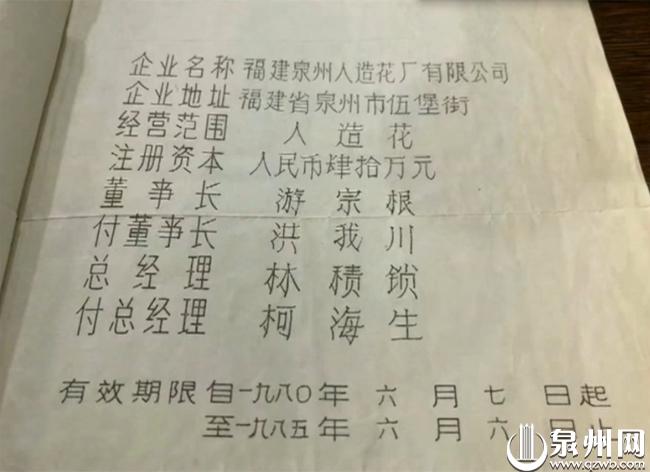 企业名称 福建泉州人造花厂有限公司
企业地址 福建省泉州市伍堡街
经营范围 人造花
注册资本 人民币肆拾万元
董事长 游宗根
付董事长 洪我川
总经理 林積锁
付总经理 柯海生
有效期限自一九八〇年 六月七日起
至一九八五年 六月六日止
泉州网
www.qzwb.com